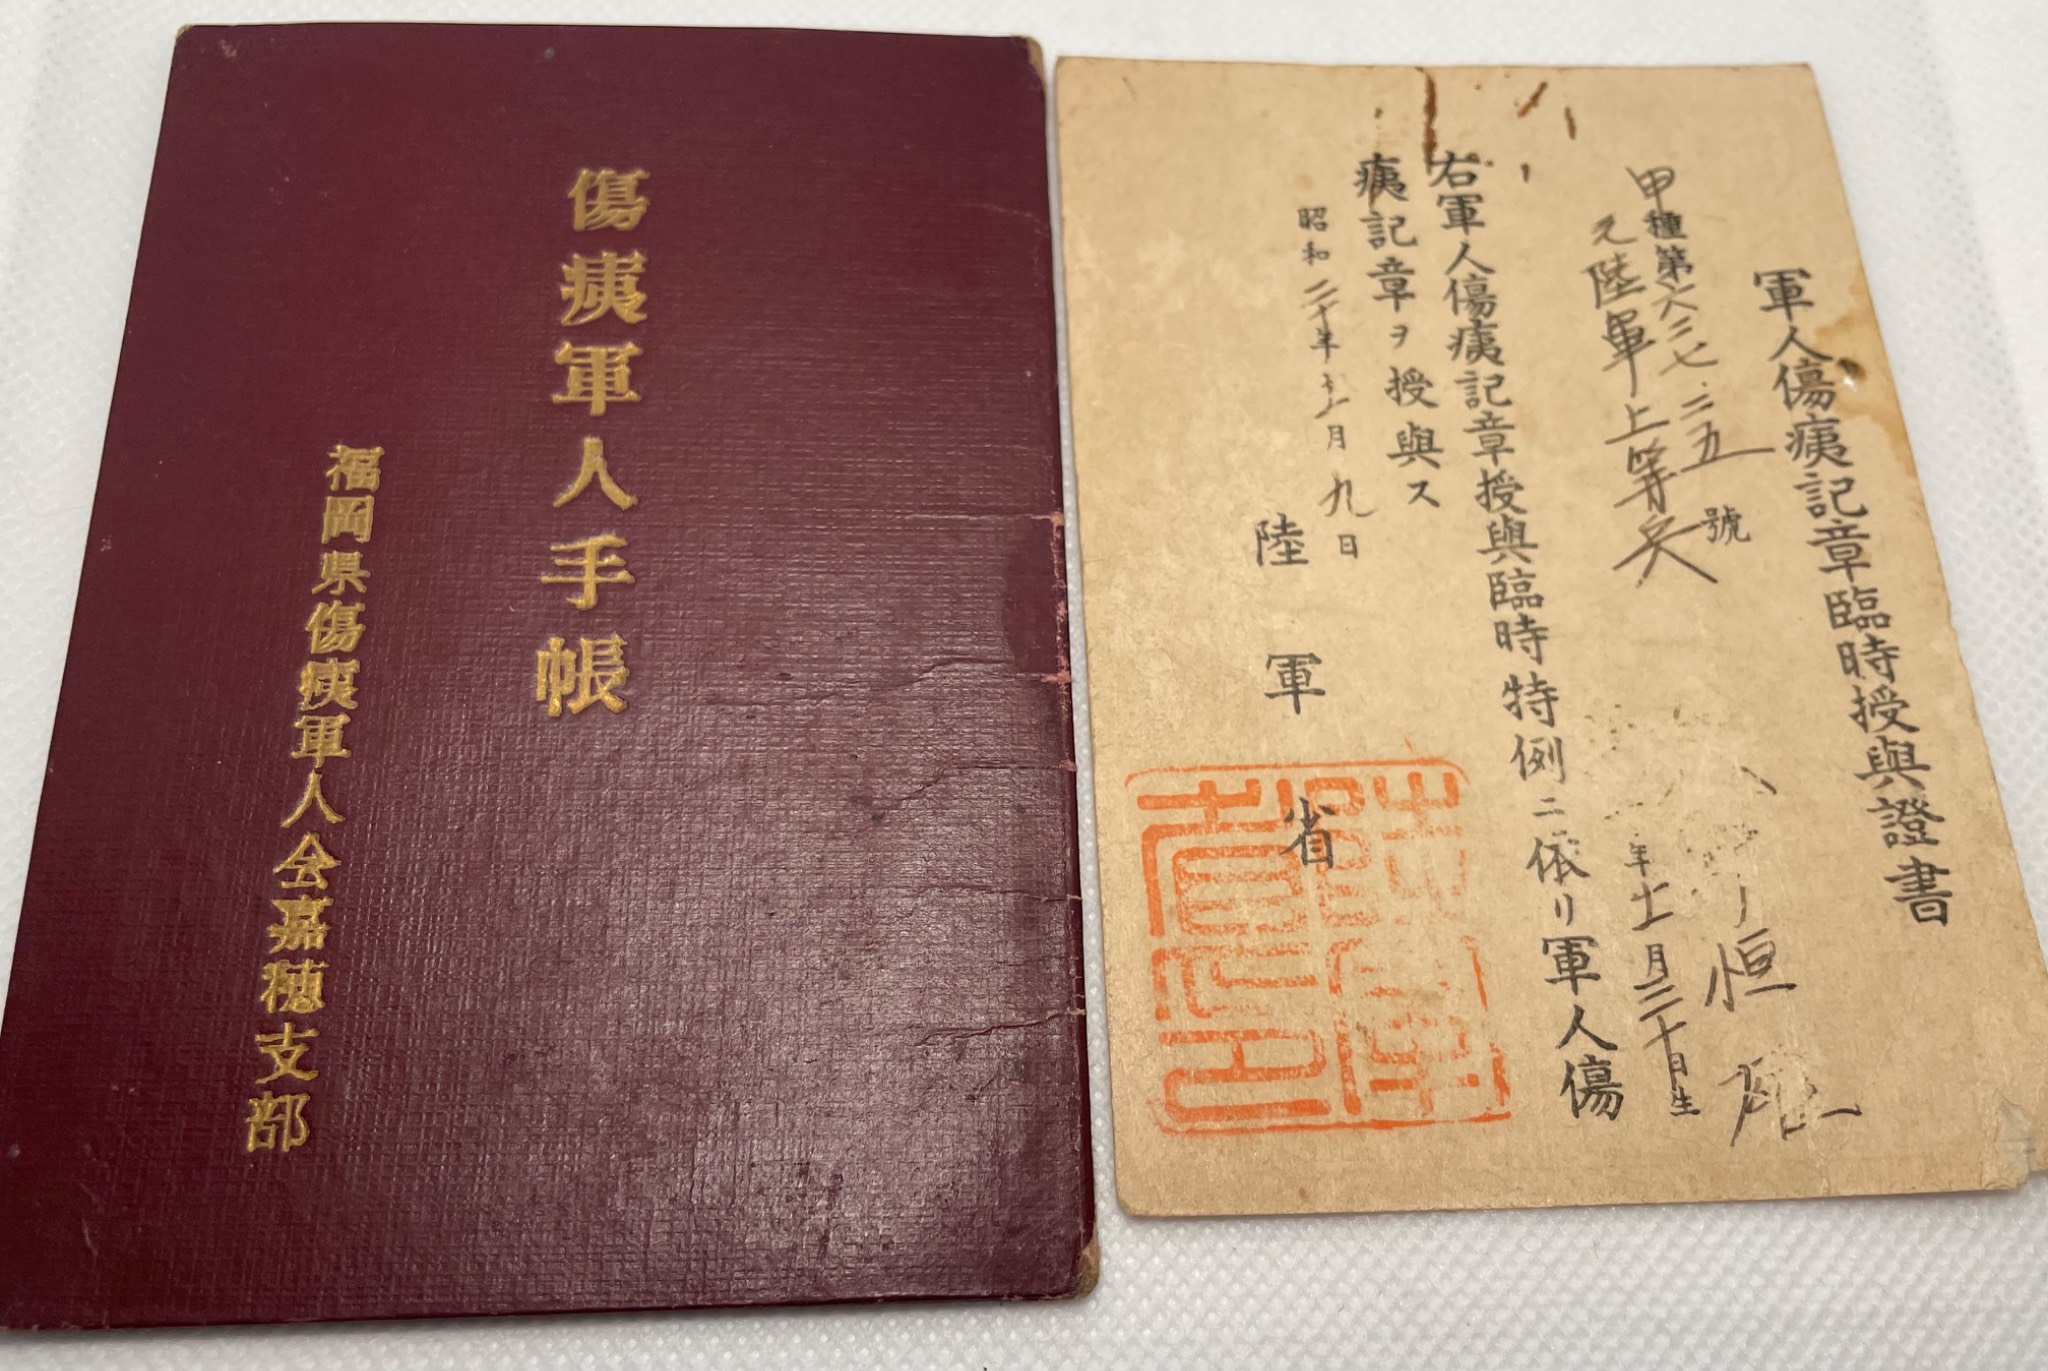 傷痍軍人手帳
福岡県傷痍軍人会嘉穂支部
軍人傷痍記章臨時授與證書
甲種第六三七二五號
元陸軍上等兵
恒
年 月三十日生
右軍人傷痍記章授與臨時特例ニ依リ軍人傷
痍記章ヲ授與ス
昭和二十年 月九日
陸軍省